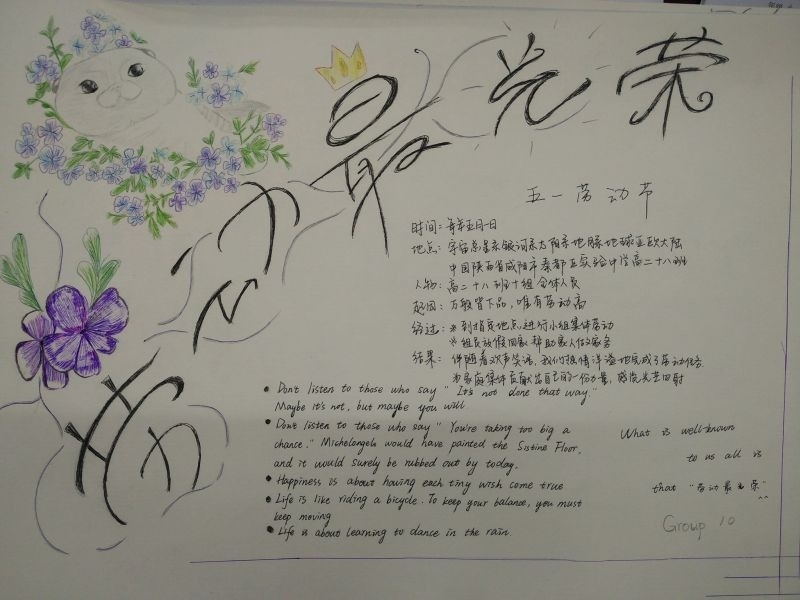 劳动最光荣
五一劳动节
时间：每年五月一日
地点：宇宙总星系银河系太阳系地球亚欧大陆
中国陕西省咸阳市秦都区实验中学高二十八班
人物：高二十八班十组全体人员
起因：万般皆下品，唯有劳动高
经过：※到指定地点进行小组集体劳动
※组员放假回家帮助家人做家务
结果：伴随着欢声笑语，我们热情洋溢地完成了劳动任务
为家庭集体贡献出自己的一份力量，感觉
• Don't listen to those who say "It's not done that way."
Maybe it's not, but maybe you will.
• Don't listen to those who say "You're taking too big a
chance." Michelangelo would have painted the Sistine Floor,
and it would surely be rubbed out by today.
• Happiness is about having each tiny wish come true
• Life is like riding a bicycle. To keep your balance, you must
keep moving
• Life is about learning to dance in the rain.
What is well-known
to us all is
that "劳动最光荣"
^^
Group 10